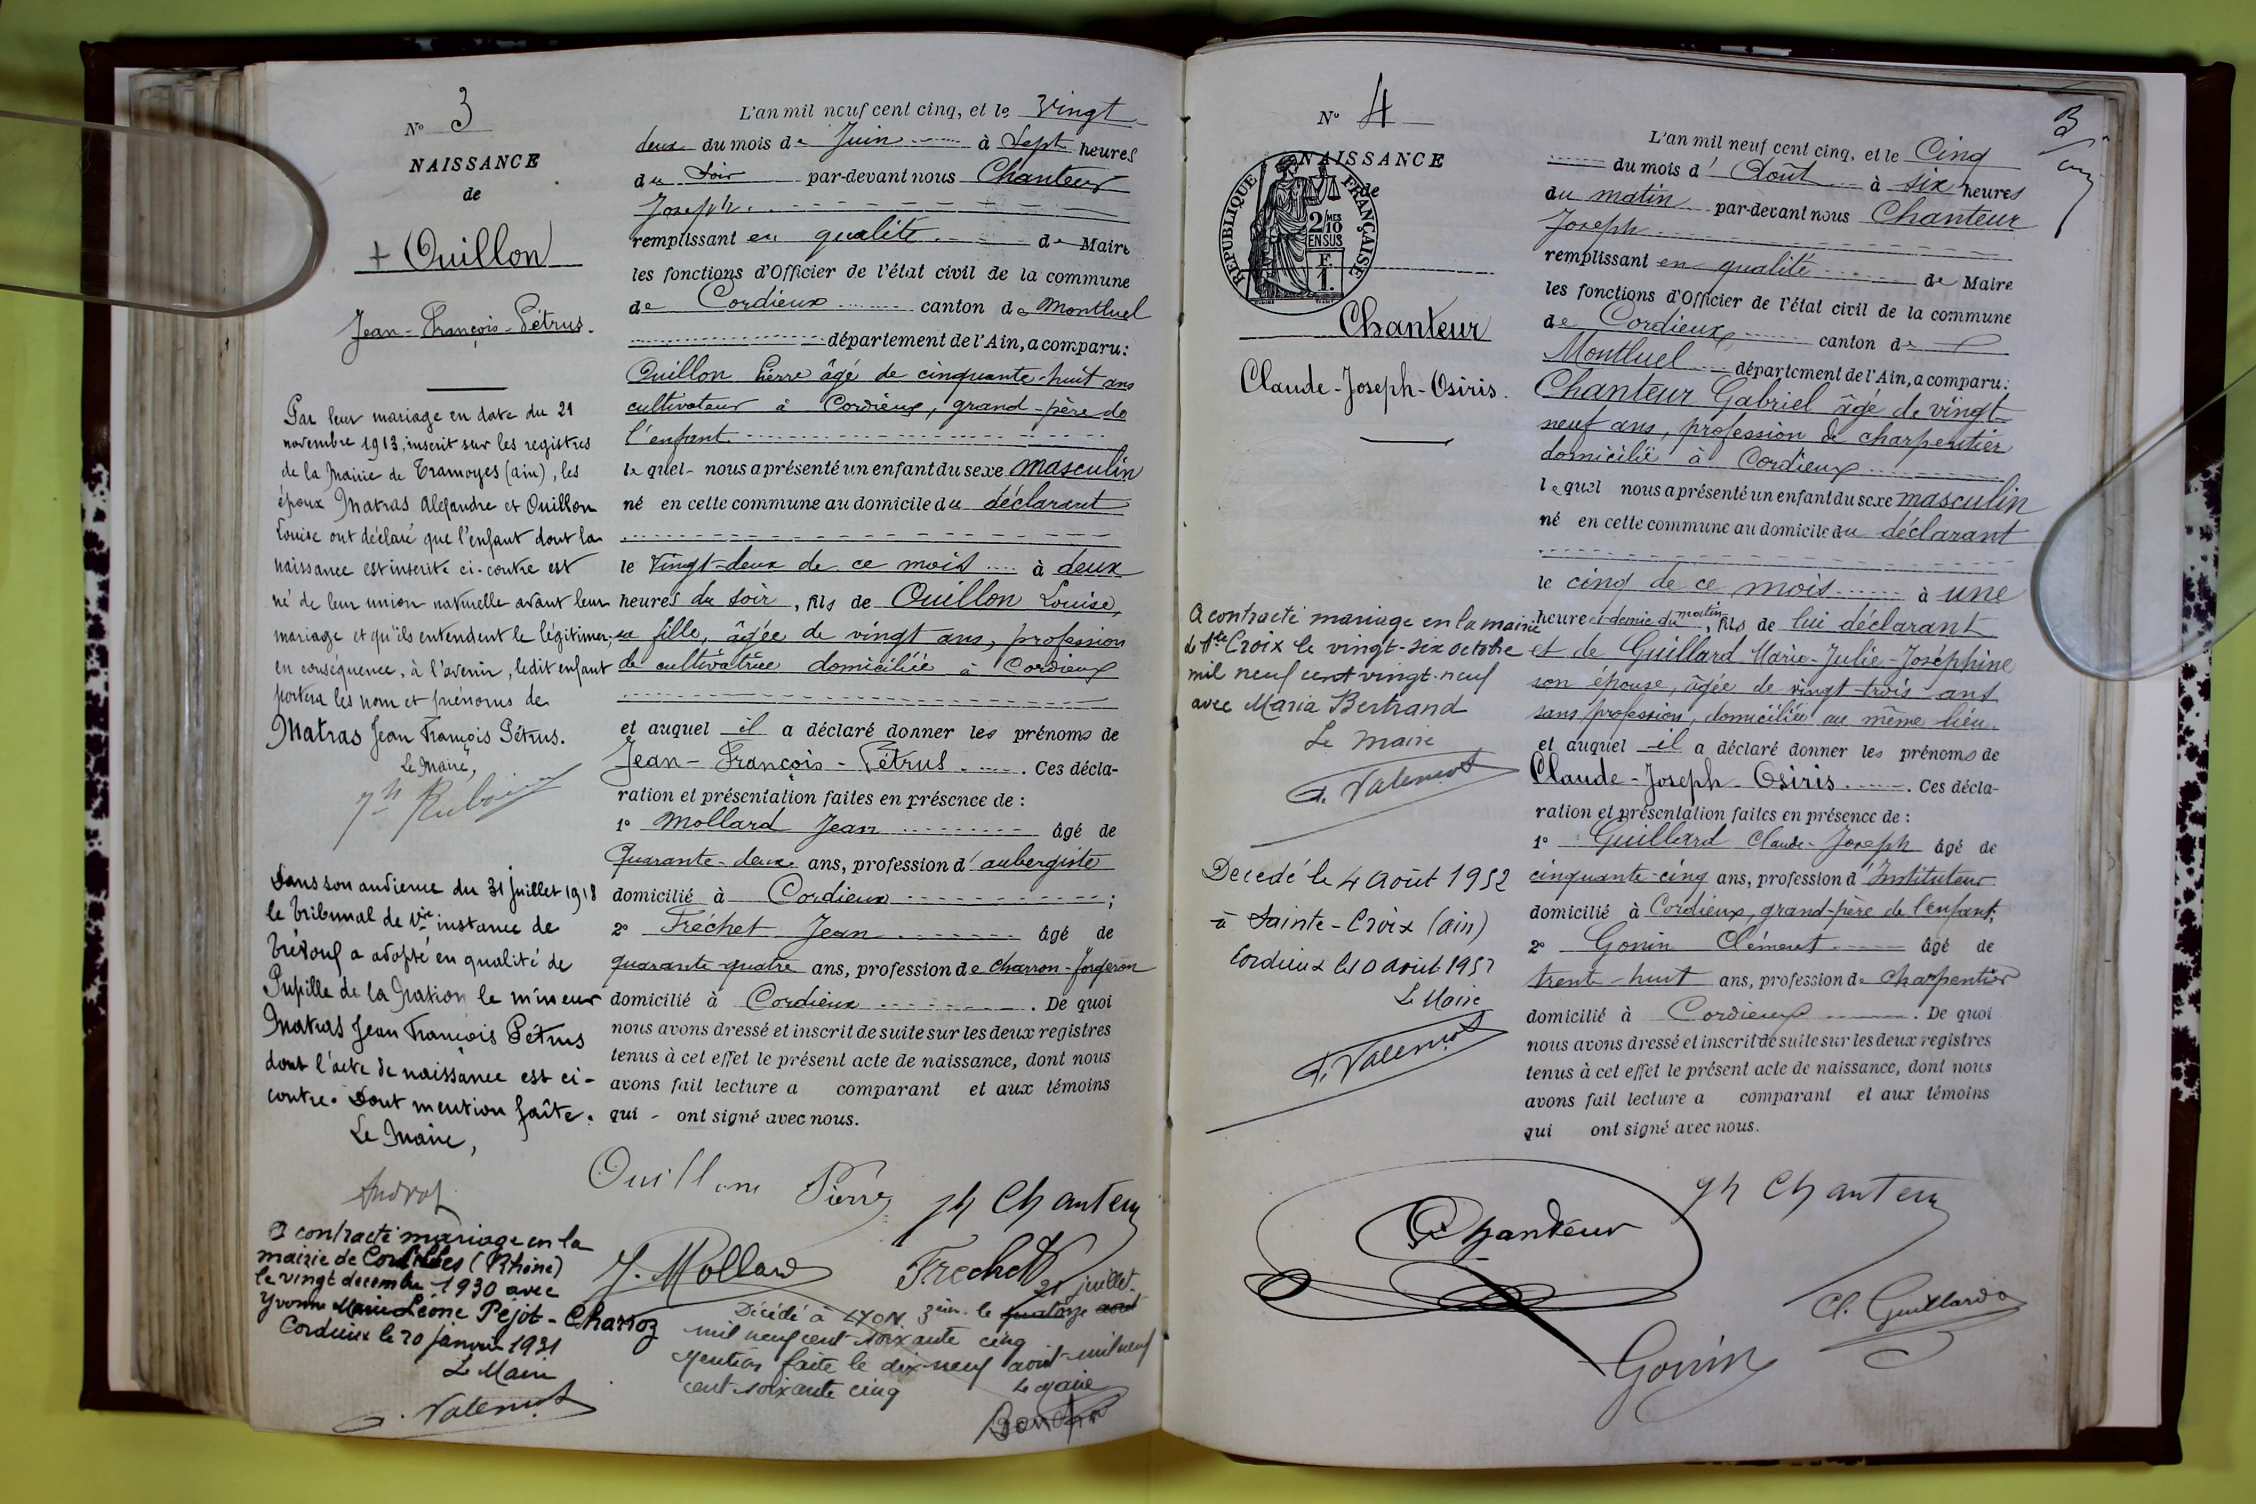 N° 3
NAISSANCE
de
+ Ouillon
Jean-François-Pétrus.
Par leur mariage en date du 21
novembre 1913, inscrit sur les registres
de la Mairie de Tramoyes (ain), les
époux Matras Alexandre et Ouillon
Louise ont déclaré que l'enfant dont la
naissance est inscrite ci-contre est
né de leur union naturelle avant leur
mariage et qu'ils entendent le légitimer;
en conséquence, à l'avenir, ledit enfant
portera les nom et prénoms de
Matras Jean François Pétrus.
Le Maire,
Dans son audience du 31 juillet 1918
le tribunal de 1re instance de
Trévoux a adopté en qualité de
Pupille de la Nation le mineur
Matras Jean François Pétrus
dont l'acte de naissance est ci-
contre. Dont mention faite.
Le Maire,
A contracté mariage en la
mairie de (Rhône)
le vingt décembre 1930 avec
Yvonne Marie Léonie Pejot-Charroz
Cordieux le 20 janvier 1931
Le Maire
L'an mil neuf cent cinq, et le Vingt
deux du mois de Juin à Sept heures
du Soir par-devant nous Chanteur
Joseph.
remplissant en qualité de Maire
les fonctions d'Officier de l'état civil de la commune
de Cordieux canton de Montluel
département de l'Ain, a comparu:
Ouillon Pierre âgé de cinquante-huit ans
cultivateur à Cordieux, grand-père de
l'enfant.
lequel nous a présenté un enfant du sexe masculin
né en cette commune au domicile du déclarant
le Vingt-deux de ce mois à deux
heures du soir, fils de Ouillon Louise,
sa fille, âgée de vingt ans, profession
de cultivatrice domiciliée à Cordieux
et auquel il a déclaré donner les prénoms de
Jean-François-Pétrus. Ces décla-
ration et présentation faites en présence de :
1° Mollard Jean âgé de
Quarante-deux ans, profession d'aubergiste
domicilié à Cordieux ;
2° Fréchet Jean âgé de
quarante-quatre ans, profession de charron-forgeron
domicilié à Cordieux. De quoi
nous avons dressé et inscrit de suite sur les deux registres
tenus à cet effet le présent acte de naissance, dont nous
avons fait lecture a comparant et aux témoins
qui - ont signé avec nous.
Ouillon Pierre Jh Chanteur
J. Mollard Frechet
21 juillet
Décédé à LYON 3ème le quatorze août
mil neuf cent soixante cinq
Mention faite le dix-neuf août mil neuf
cent soixante cinq Le Maire
N° 4
NAISSANCE
de
REPUBLIQUE FRANÇAISE
2/10 MES
EN SUS
F.
1.
Chanteur
Claude-Joseph-Osiris.
A contracté mariage en la mairie
de Ste Croix le vingt-six octobre
mil neuf cent vingt-neuf
avec Maria Bertrand
Le Maire
Decedé le 4 Août 1952
à Sainte-Croix (ain)
Cordieux le 10 août 1952
Le Maire
L'an mil neuf cent cinq, et le Cinq
du mois d'Août à six heures
du matin par-devant nous Chanteur
Joseph
remplissant en qualité de Maire
les fonctions d'Officier de l'état civil de la commune
de Cordieux canton de
Montluel département de l'Ain, a comparu:
Chanteur Gabriel âgé de vingt
neuf ans, profession de charpentier
domicilié à Cordieux
lequel nous a présenté un enfant du sexe masculin
né en cette commune au domicile du déclarant
le cinq de ce mois à une
heure et demie du matin, fils de lui déclarant
et de Guillard Marie-Julie-Joséphine
son épouse, âgée de vingt-trois ans
sans profession, domiciliée au même lieu.
et auquel il a déclaré donner les prénoms de
Claude-Joseph-Osiris. Ces décla-
ration et présentation faites en présence de :
1° Guillard Claude-Joseph âgé de
cinquante-cinq ans, profession d'Instituteur
domicilié à Cordieux, grand-père de l'enfant;
2° Gonin Clément âgé de
trente-huit ans, profession de charpentier
domicilié à Cordieux. De quoi
nous avons dressé et inscrit de suite sur les deux registres
tenus à cet effet le présent acte de naissance, dont nous
avons fait lecture a comparant et aux témoins
qui ont signé avec nous.
Chanteur Jh Chanteur
Cl. Guillard
Gonin